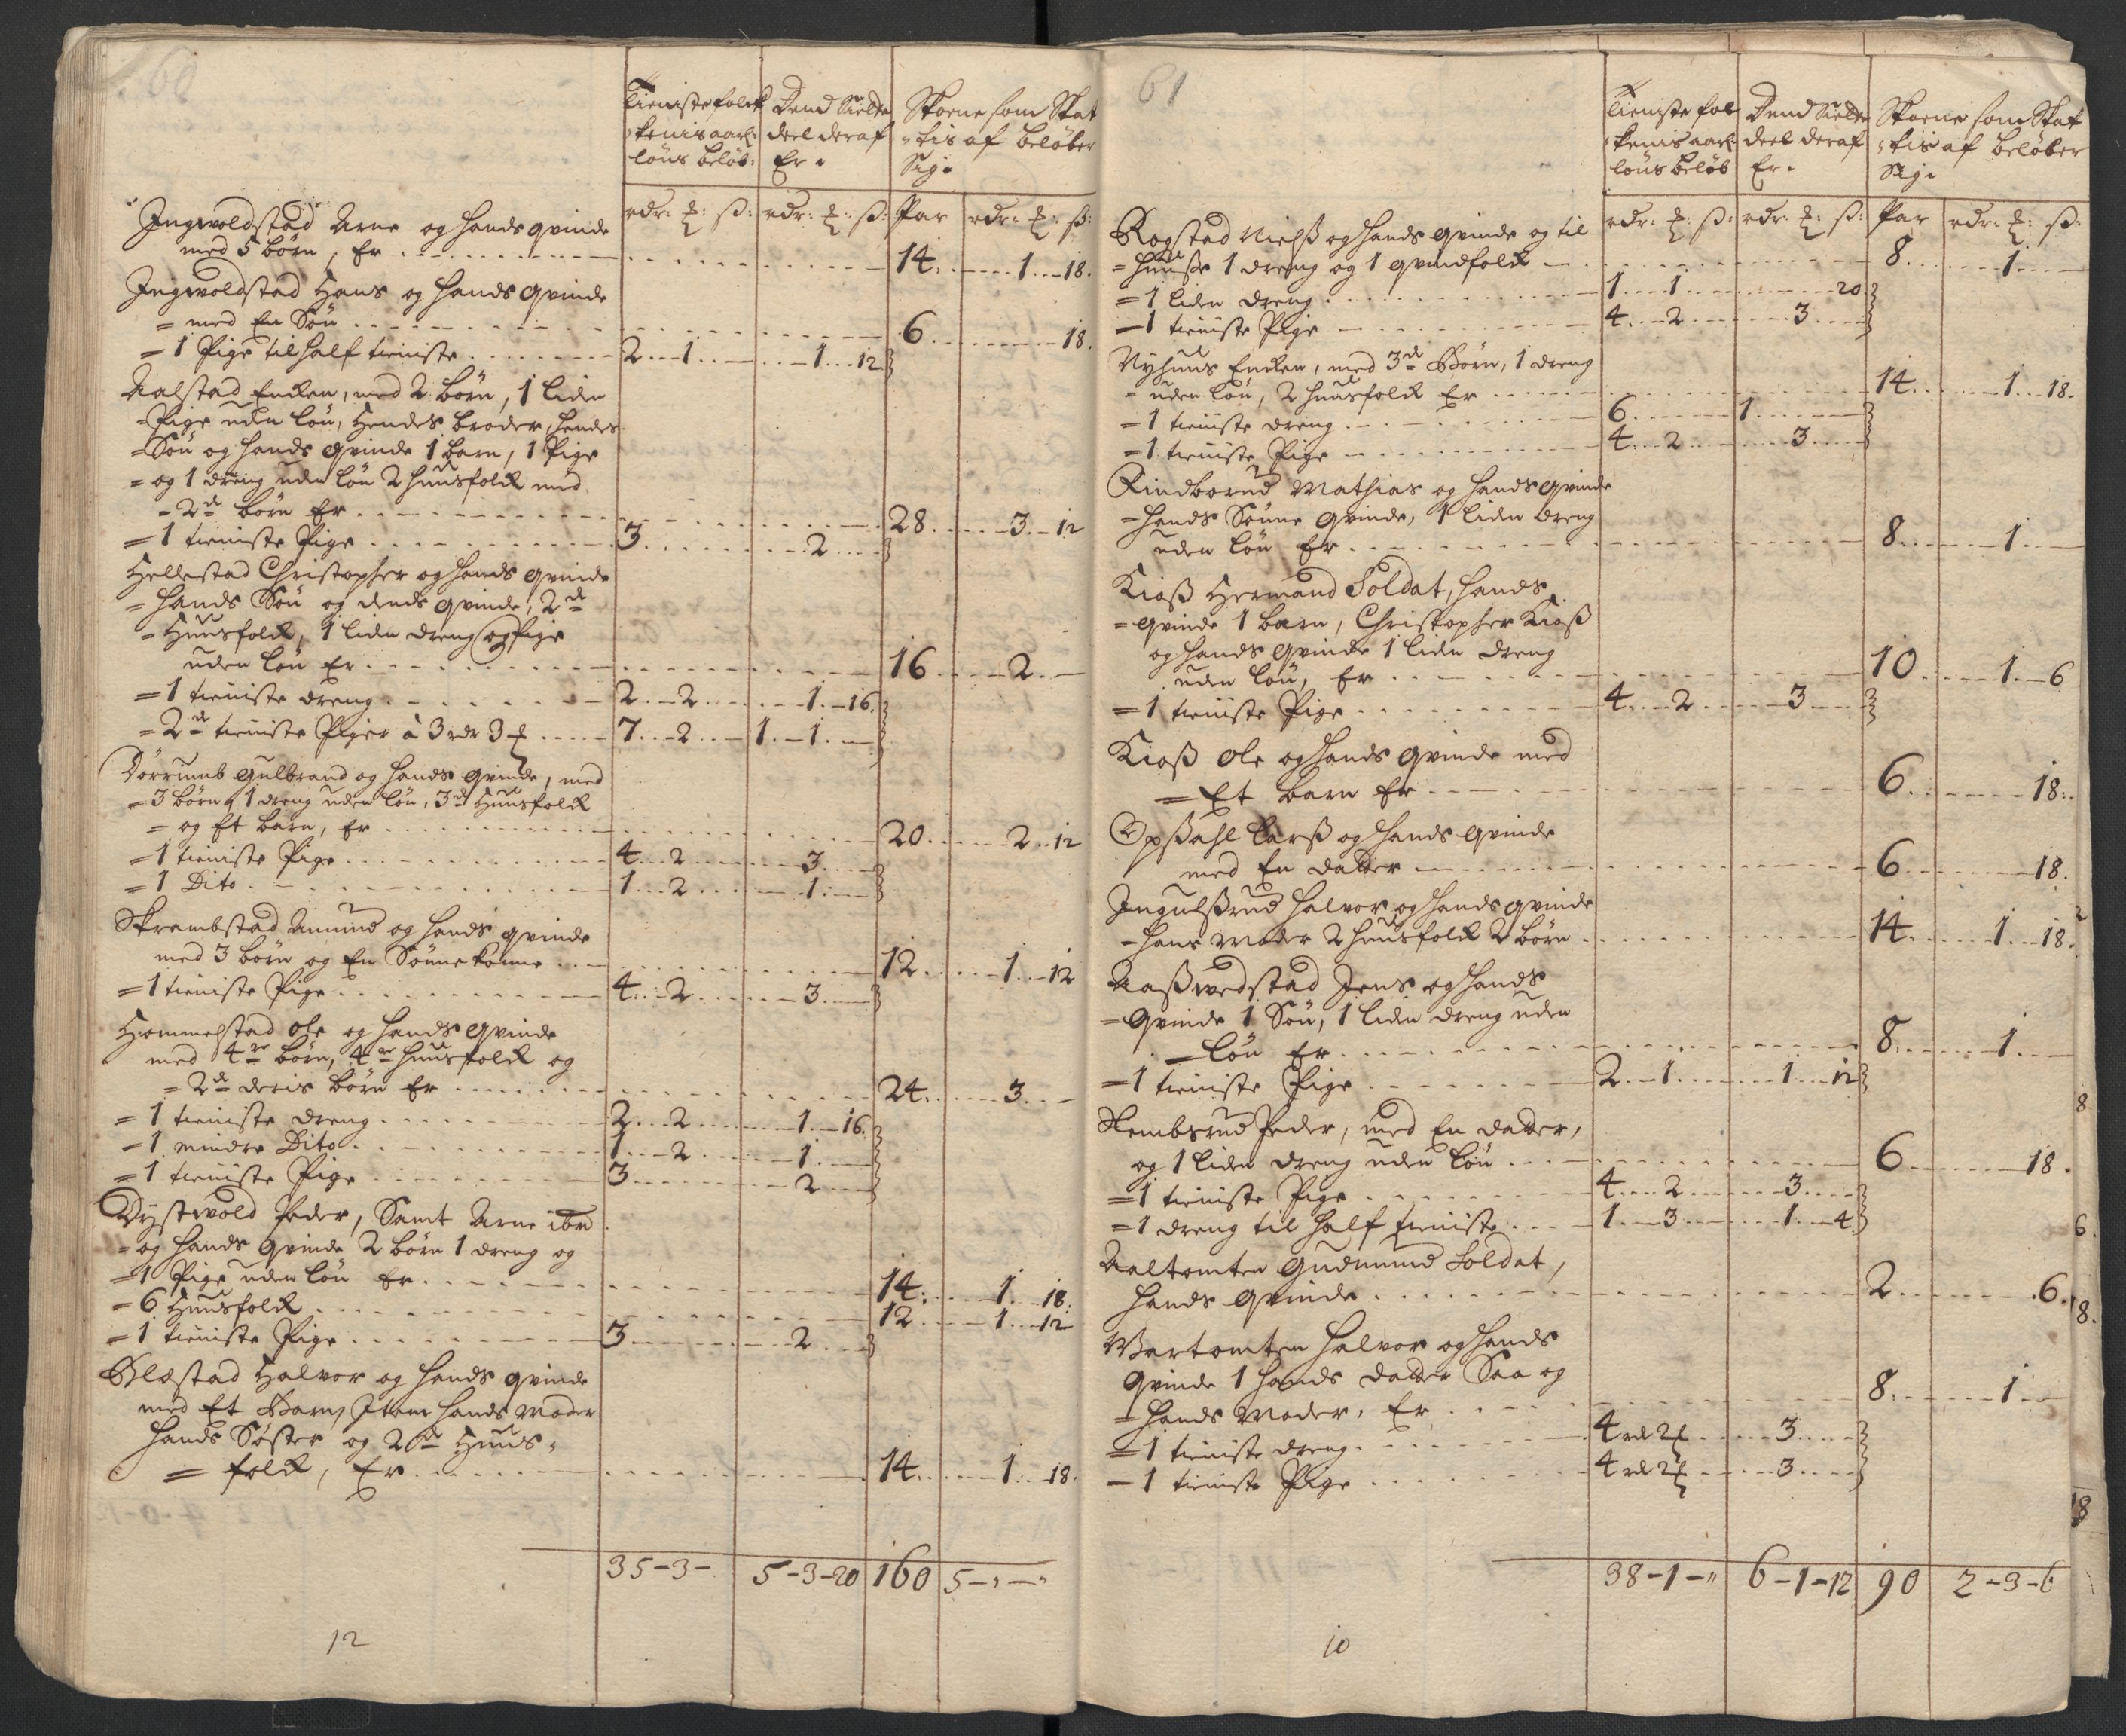 60
Tieniste folck
-kenis aarl:
löns beløb:
Dend Siette
deel deraf
Er.
Skoene som Skat
-tis af beløber
Sig.
rdr: ꝣ: ß: rdr: ꝣ: ß: Par rdr: ꝣ: ß:
Ingwoldstad Arne og hands qvinde
med 5 börn, Er 14. 1. 18.
Ingwoldstad Hans og hands qvinde
= med En Sön 6 18.
= 1 Pige til half tieniste 2 1 1 12
Aalstad Encken, med 2 börn, 1 liden
-Pige uden lön, Hendes broder, hendes
-Sön og hands qvinde 1 barn, 1 Pige
= og 1 dreng uden lön 2 huusfolck med
- 2de börn Er 28 3 12
= 1 tieniste Pige 3 2
Hellestad Christopher og hands qvinde
= hands Sön og dends qvinde, 2de
= Huusfolck, 1 liden dreng og Pige
uden lön Er 16 2
= 1 tieniste dreng 2 2 1 16
= 2de tieniste Piger à 3 rdr 3 ꝣ 7 2 1 1
Dörrumb Gulbrand og hands qvinde, med
= 3 börn, 1 dreng uden lön, 3de Huusfolck
= og Et barn, Er 20 2 12
= 1 tieniste Pige 4 2 3
= 1 Dito 1 2 1
Skrambstad Amund og hands qvinde
med 3 börn og En Sönnekonne 12 1 12
= 1 tieniste Pige 4 2 3
Hommelstad Ole og hands qvinde
med 4re börn, 4re huusfolck og
= 2de deris börn Er 24 3
= 1 tieniste dreng 2 2 1 16
= 1 mindre Dito 1 2 1
= 1 tieniste Pige 3 2
Dystwold Peder, Samt Arne ibm
- og hands qvinde 2 börn 1 dreng og
= 1 Pige uden lön Er 14 1 18
= 6 Huusfolck 12 1 12
= 1 tieniste Pige 3 2
Blæstad Halvor og hands qvinde
med Et Barn, Item hands Moder
hands Söster og 2de Huus-
= folck, Er 14 1 18
35-3- 5-3-20 160 5-"-"
12
61
Tieniste fol
-kenis aarl:
löns beløb
Dend Siette
deel deraf
Er.
Skoene som Skat
-tis af beløber
Sig.
rdr: ꝣ: ß: rdr: ꝣ: ß: Par rdr: ꝣ: ß:
Rogstad Nielß og hands qvinde og til
= huuse 1 dreng og 1 qvindfolck 8 1
= 1 liden dreng 1 1 20
= 1 tieniste Pige 4 2 3
Nyhuus Encken, med 3de Börn, 1 dreng
- uden lön, 2 huusfolck Er 14 1 18.
= 1 tieniste dreng 6 1
= 1 tieniste Pige 4 2 3
Mathias og hands qvinde
= hands Sönne qvinde, 1 liden dreng
uden lön Er 8 1
Kioß Hermand Soldat, hands
= qvinde 1 barn, Christopher Kioß
og hands qvinde 1 liden dreng
uden lön, Er 10 1 6
= 1 tieniste Pige 4 2 3
Kioß Ole og hands qvinde med
= Et barn Er 6 18.
Opßahl Larß og hands qvinde
med En datter 6 18.
Ingulßrud Halvor og hands qvinde
- hans Moder 2 huusfolck 2 börn 14 1 18.
Aaßwedstad Jens og hands
= qvinde 1 Sön, 1 liden dreng uden
= lön Er 8 1
= 1 tieniste Pige 2 1 1 12
Stembsrud Peder, med En datter,
og 1 liden dreng uden lön 6 18.
= 1 tieniste Pige 4 2 3
= 1 dreng til half tieniste 1 3 1 4
Aaltomten Gudmund Soldat,
hands qvinde 2 6.
Wartomten Halvor og hands
qvinde 1 hands datter Saa og
= hands Moder, Er 8 1
= 1 tieniste dreng 4 rd 2 ꝣ 3
= 1 tieniste Pige 4 rd 2 ꝣ 3
38-1-" 6-1-12 90 2-3-6
10